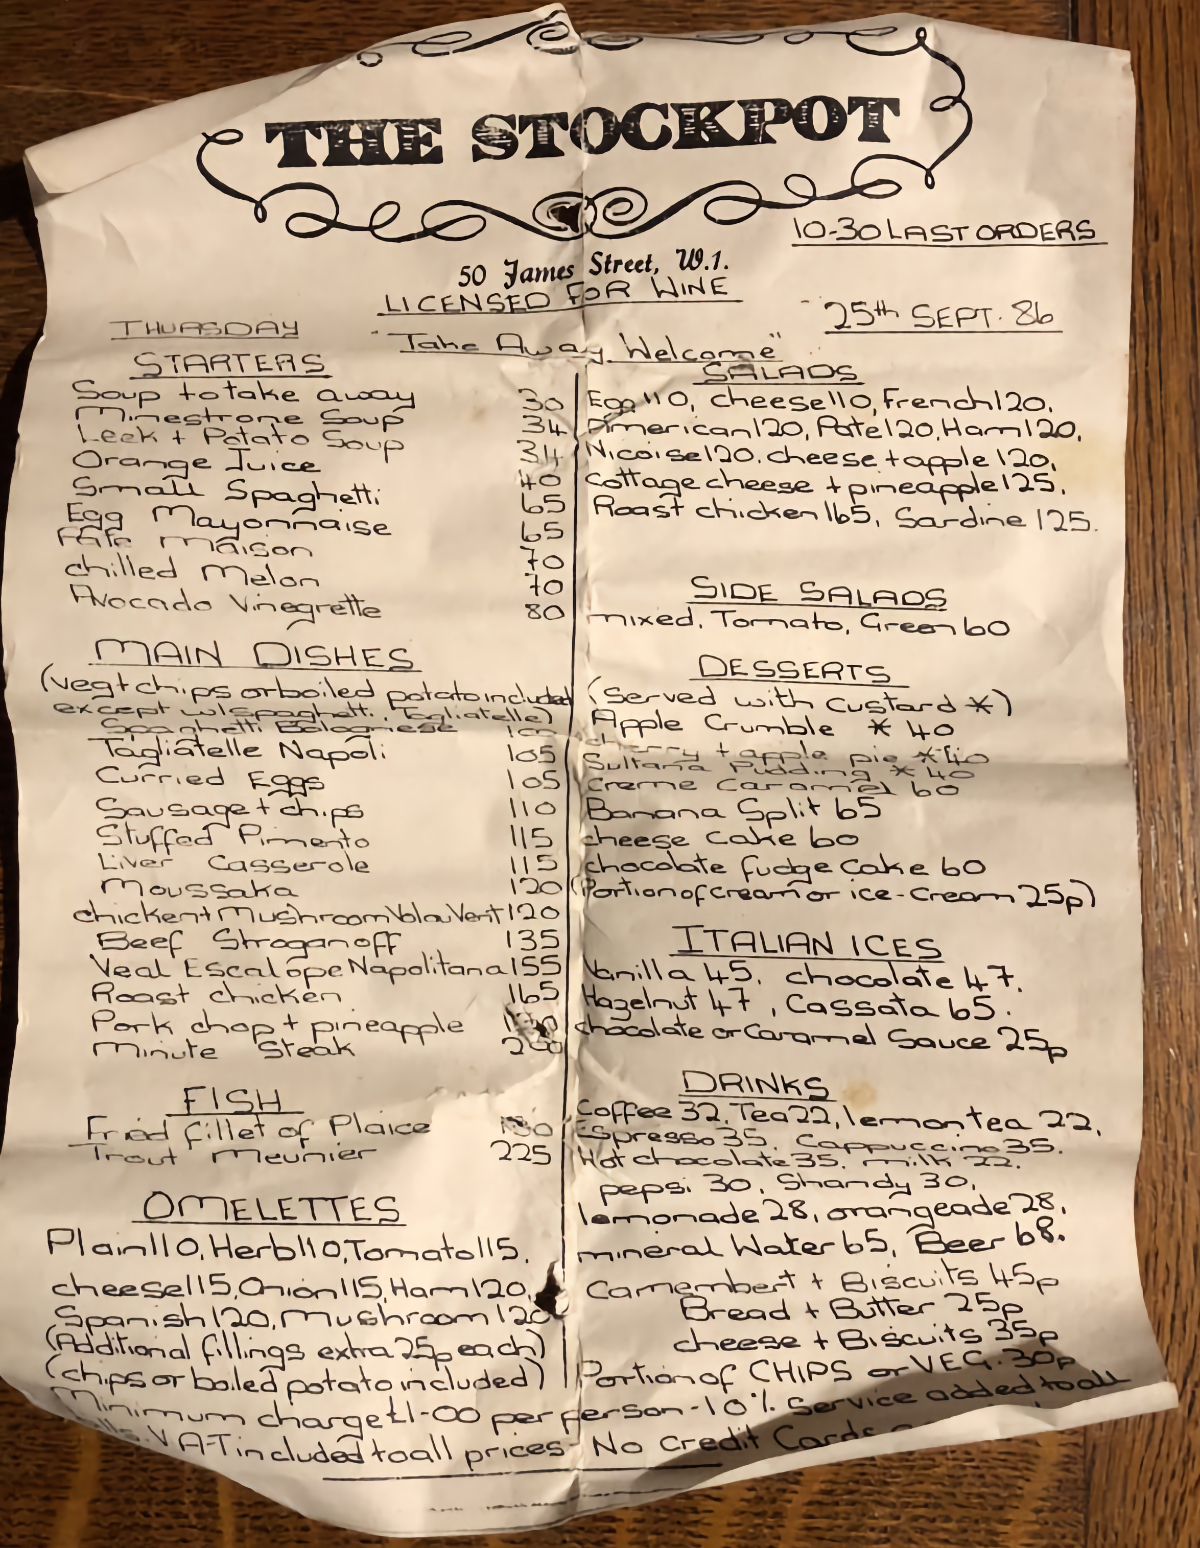 THE STOCKPOT
10-30 LAST ORDERS
50 James Street, W.1.
LICENSED FOR WINE
THURSDAY
25th SEPT. 86
"Take Away Welcome"
STARTERS
Soup to take away 30
Minestrone Soup 34
Leek + Potato Soup 34
Orange Juice 40
Small Spaghetti 65
Egg Mayonnaise 65
Pate Maison 70
chilled Melon 70
Avocado Vinegrette 80
MAIN DISHES
(veg+chips or boiled potato included
except w/spaghetti, Tagliatelle)
Spaghetti Bolognese
Tagliatelle Napoli 105
Curried Eggs 105
Sausage + chips 110
Stuffed Pimento 115
Liver Casserole 115
Moussaka 120
chicken+Mushroom Volau Vent 120
Beef Stroganoff 135
Veal Escalope Napolitana 155
Roast chicken 165
Pork chop + pineapple
Minute Steak
FISH
Fried fillet of Plaice
Trout Meunier 225
OMELETTES
Plain 110, Herb 110, Tomato 115,
cheese 115, Onion 115, Ham 120,
Spanish 120, Mushroom 120
(Additional fillings extra 25p each)
(chips or boiled potato included)
SALADS
Egg 110, cheese 110, French 120,
American 120, Pate 120, Ham 120,
Nicoise 120, cheese + apple 120,
cottage cheese + pineapple 125,
Roast chicken 165, Sardine 125.
SIDE SALADS
mixed, Tomato, Green 60
DESSERTS
(Served with Custard *)
Apple Crumble * 40
cherry + apple pie * 40
Sultana Pudding * 40
Creme Caramel 60
Banana Split 65
cheese cake 60
chocolate fudge cake 60
(Portion of cream or ice-cream 25p)
ITALIAN ICES
Vanilla 45, chocolate 47,
Hazelnut 47, Cassata 65.
chocolate or Caramel Sauce 25p
DRINKS
Coffee 32, Tea 22, lemon tea 22,
Espresso 35, Cappuccino 35.
Hot chocolate 35, milk 22.
pepsi 30, Shandy 30,
lemonade 28, orangeade 28,
mineral Water 65, Beer 68.
Camembert + Biscuits 45p
Bread + Butter 25p
cheese + Biscuits 35p
Portion of CHIPS or VEG. 30p
Minimum charge £1-00 per person - 10% Service added to all
V.A.T included to all prices - No Credit Cards